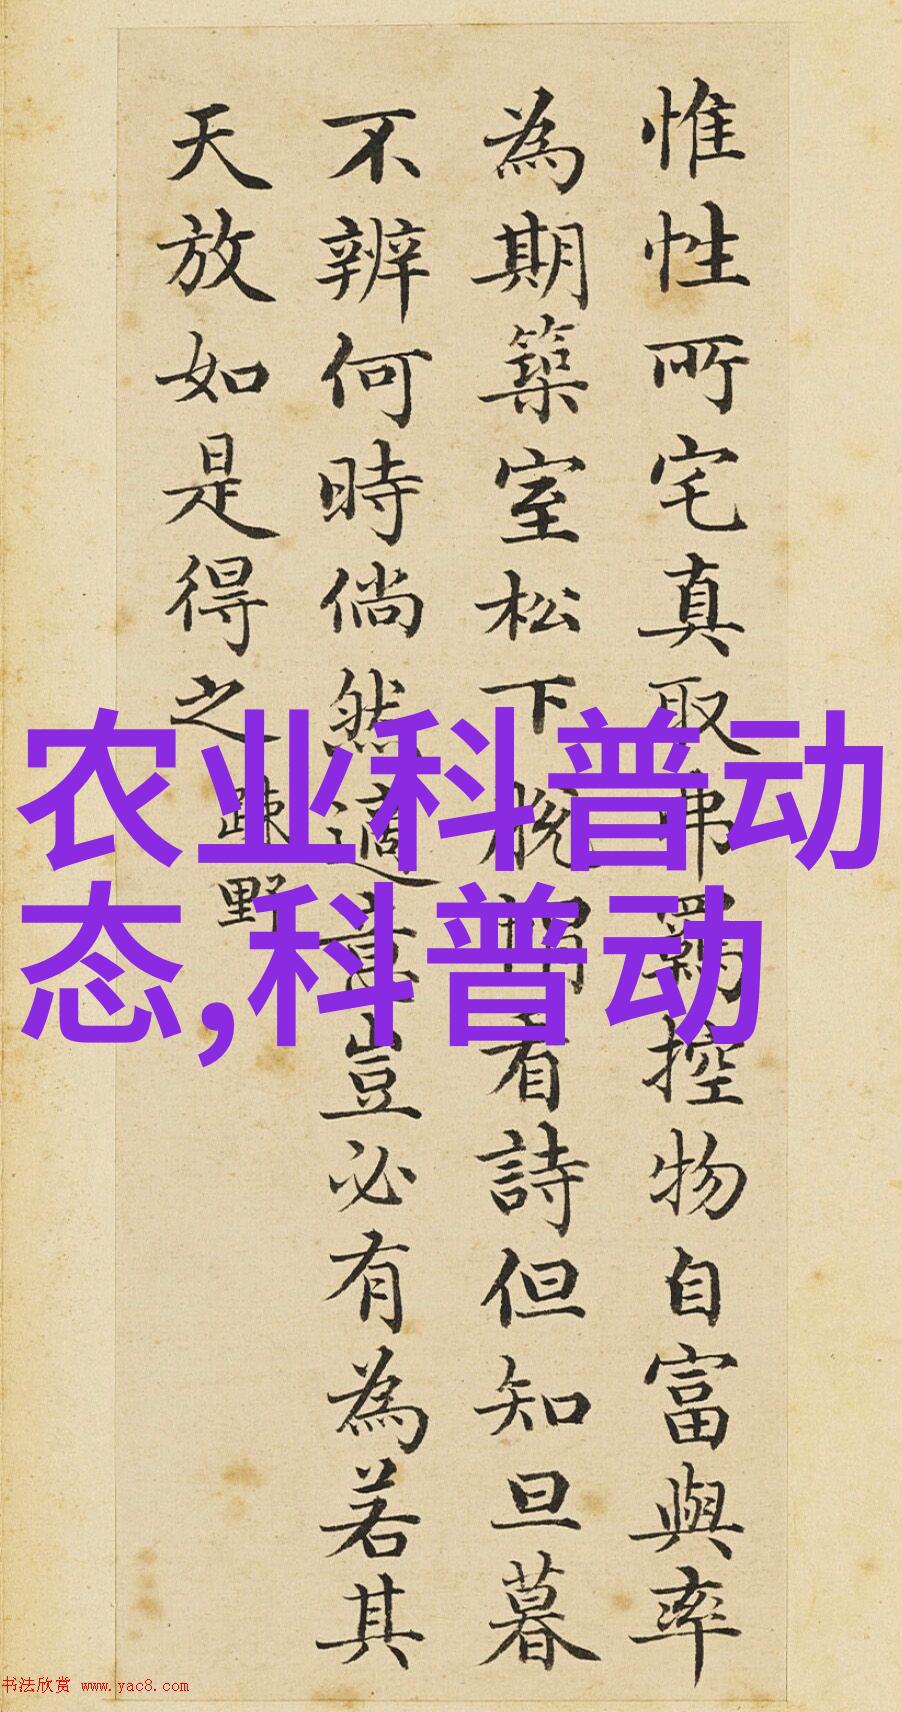 惟性所宅真取弗羈控物自富與率
為期築室松下脫帽看詩但知旦暮
不辨何時倘然適意豈必有為若其
天放如是得之
疎野
农业科普动
态,科普动
书法欣赏 www.yac8.com